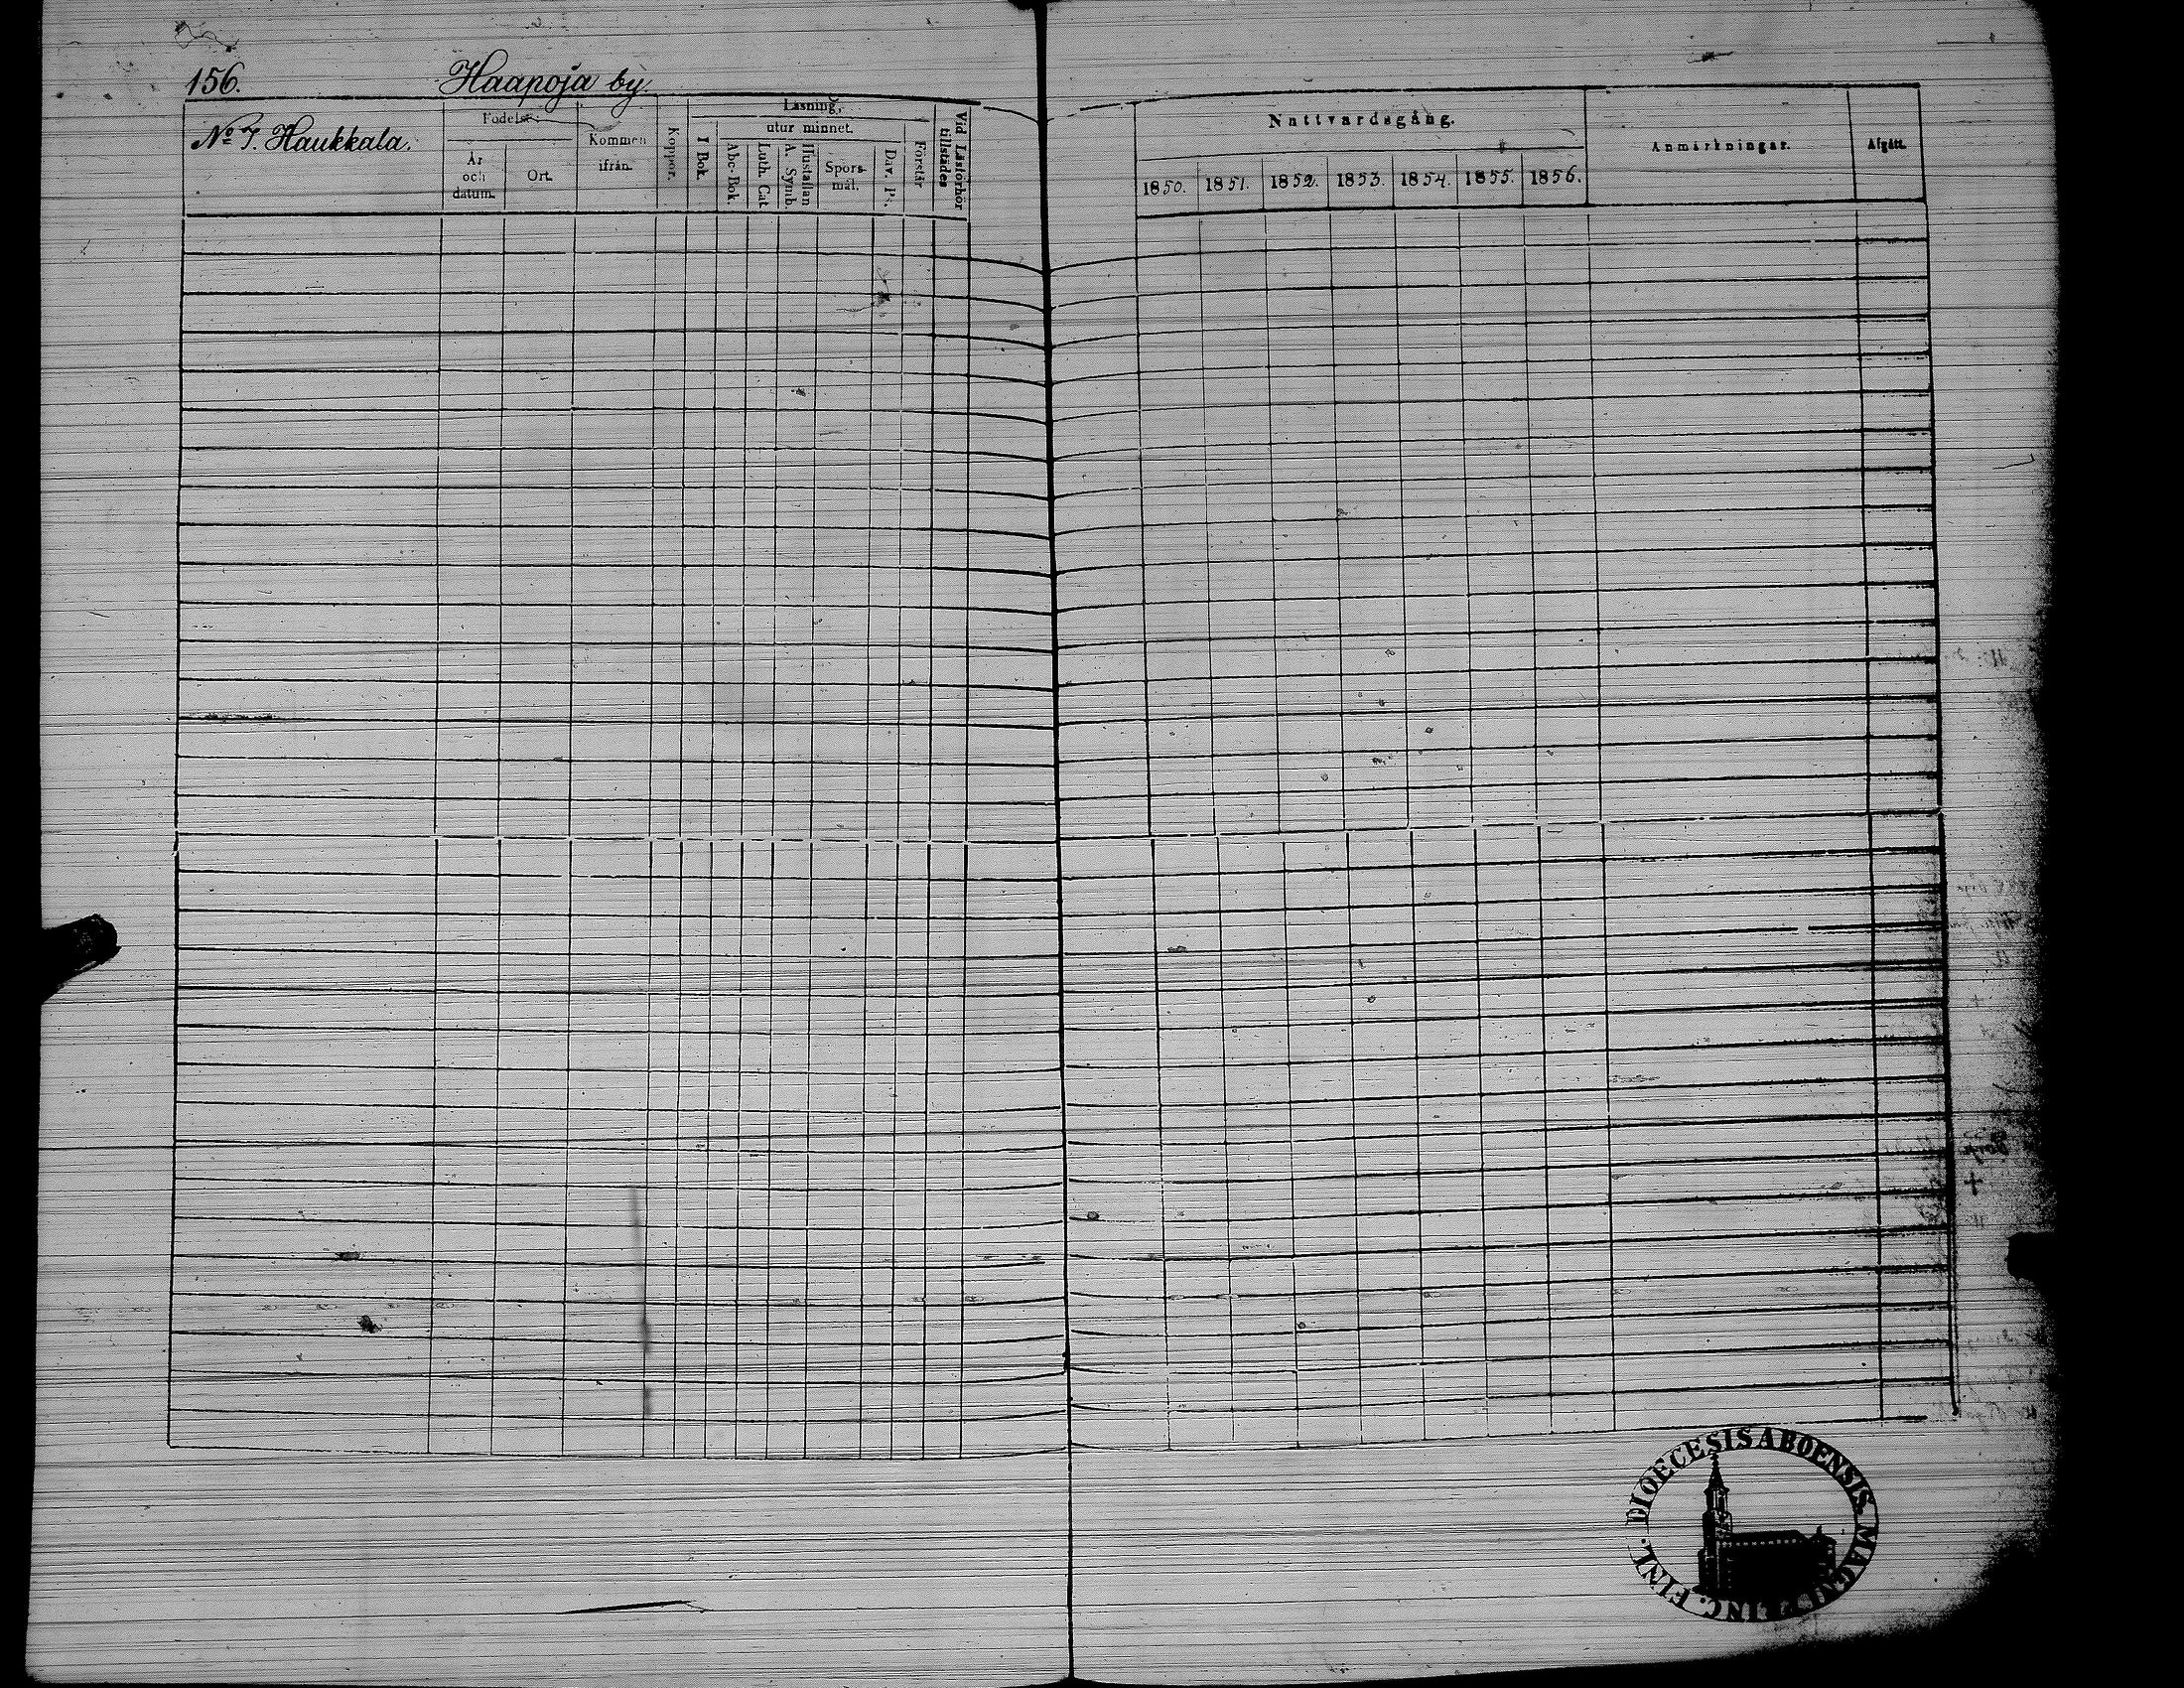 156. Haapoja by.
No 7. Haukkala.
Födelse
År och datum.
Ort.
Kommen ifrån.
Koppor.
Läsning,
I Bok.
utur minnet.
Abc-Bok.
Luth. Cat.
Hustaflan A. Symb.
Spörsmål.
Dav. Ps.
Förstår
Vid Läsförhör tillstädes
Nattvardsgång.
1850. 1851. 1852. 1853. 1854. 1855. 1856.
Anmärkningar.
Afgått.
DIOECESIS ABOENSIS. MAGNI PRINC. FINL.